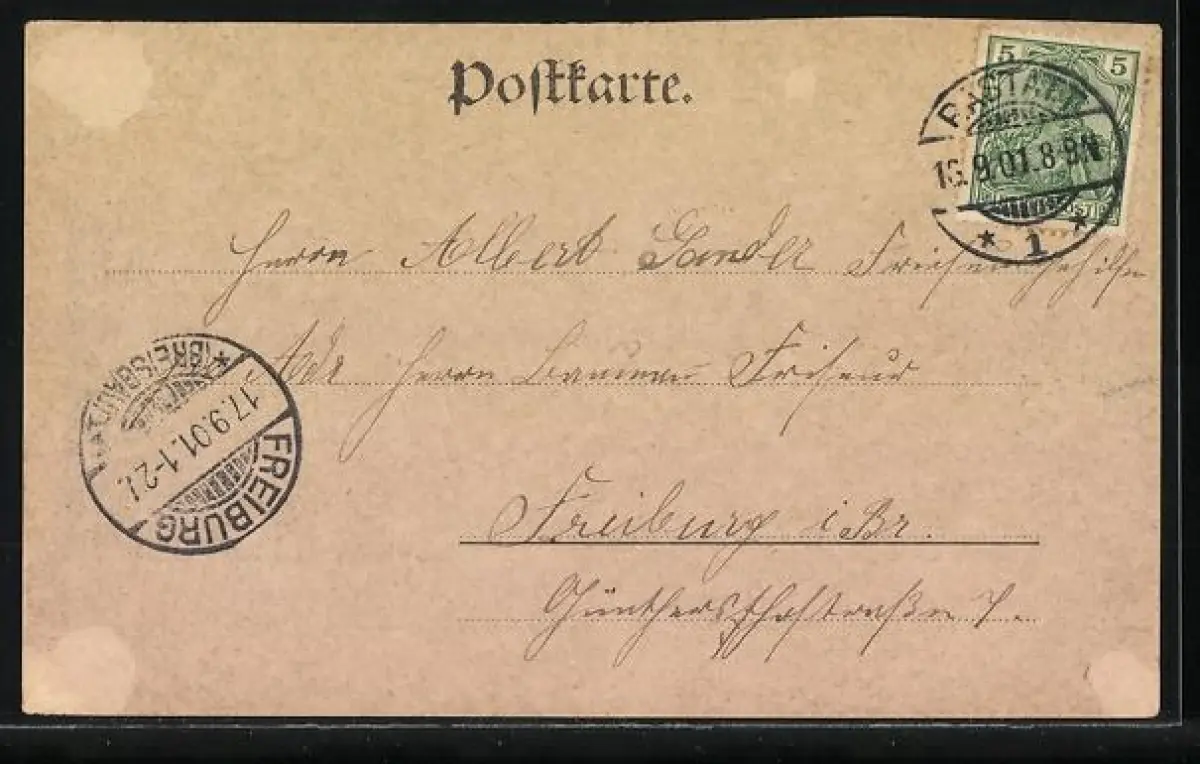 Postkarte.
5 5
RASTATT
16.9.01.8-9N
* 1 *
Herrn Albert Sander Friseurgehilfe
Adr Herrn Bauman Friseur
* (BREISGAU)
17.9.01.1-2
FREIBURG
Freiburg i Br.